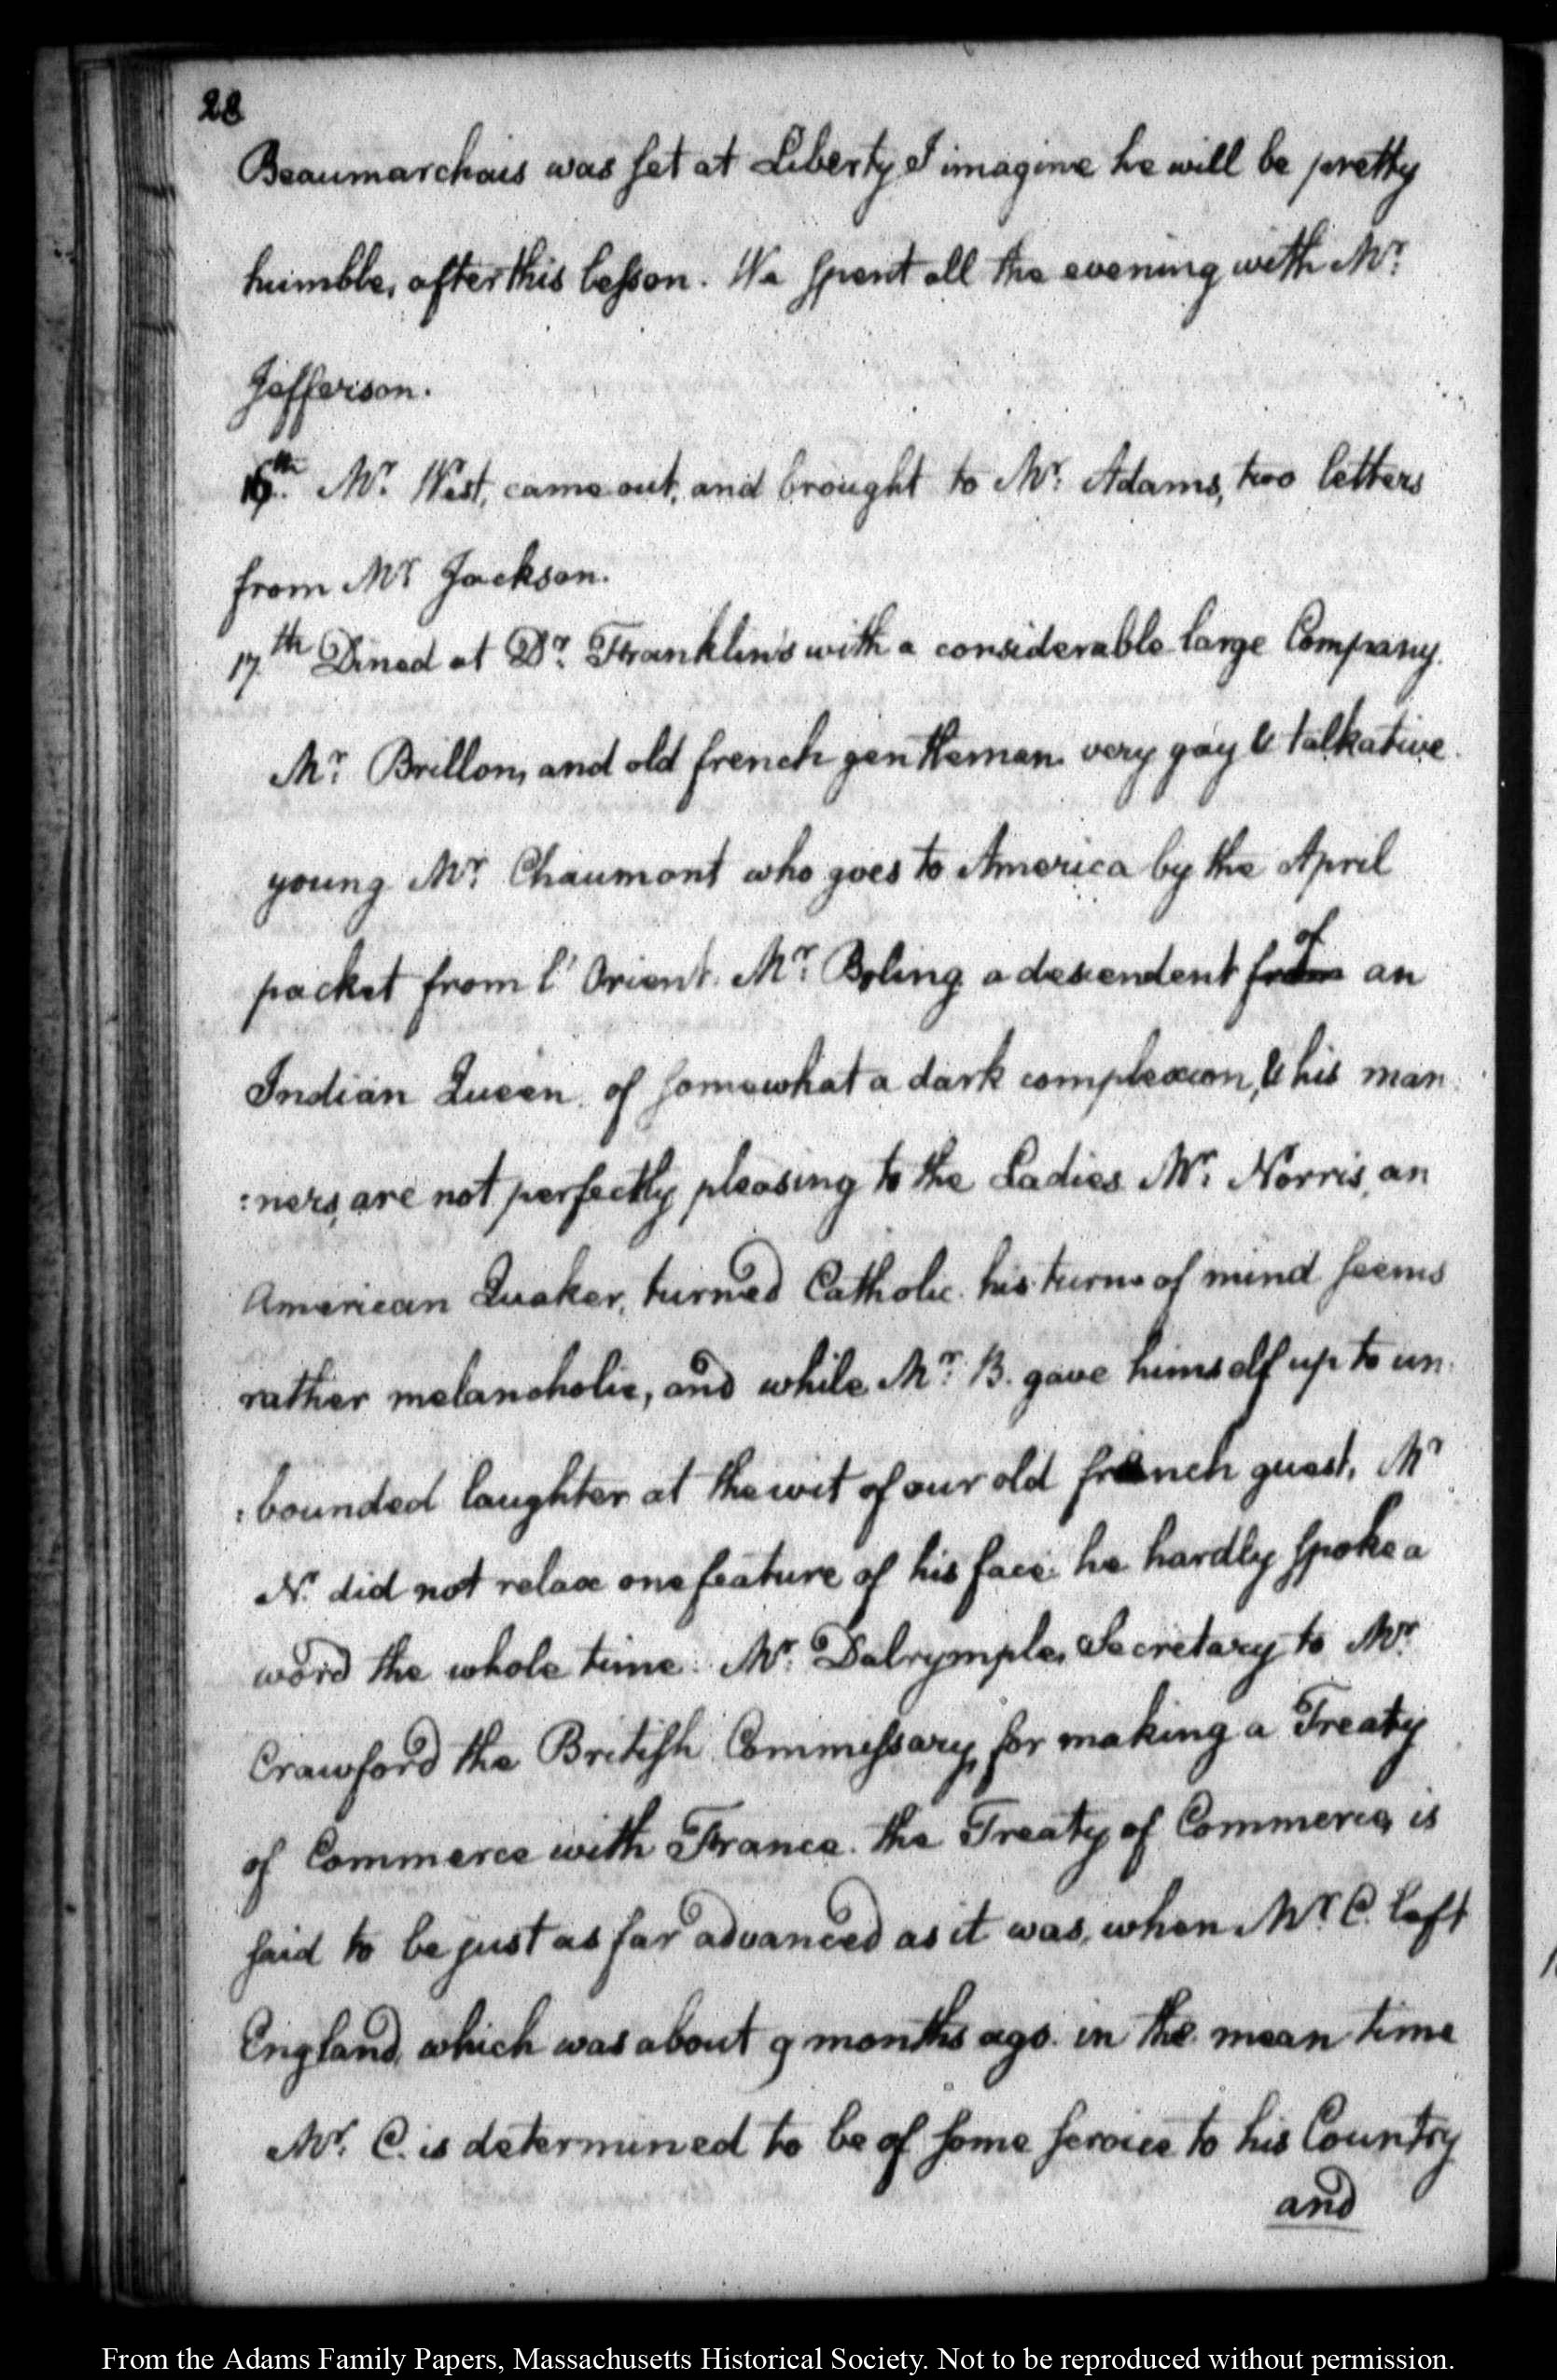 28
Beaumarchais was set at Liberty I imagine he will be pretty
humble, after this lesson. We spent all the evening with Mr:
Jefferson.
16th. Mr. West, came out, and brought to Mr: Adams, two letters
from Mr Jackson.
17.th Dined at Dr. Franklin's with a considerable large Company.
Mr. Brillon, and old french gentleman. very gay & talkative.
young Mr. Chaumont who goes to America by the April
packet from l'Orient. Mr. Boling a descendent from of an
Indian Queen. of somewhat a dark complexion, & his man
:ners, are not perfectly pleasing to the Ladies. Mr. Norris, an
American Quaker, turned Catholic. his turn of mind seems
rather melancholic, and while Mr. B. gave himself up to un
:bounded laughter at the wit of our old french guest, Mr
N. did not relax one feature of his face. he hardly spoke a
word the whole time. Mr. Dalrymple, Secretary to Mr.
Crawford the British Commissary, for making a Treaty
of Commerce with France. the Treaty of Commerce, is
said to be just as far advanced as it was, when Mr. C. left
England, which was about 9 months ago. in the mean time
Mr. C. is determined to be of some service to his Country
and
From the Adams Family Papers, Massachusetts Historical Society. Not to be reproduced without permission.